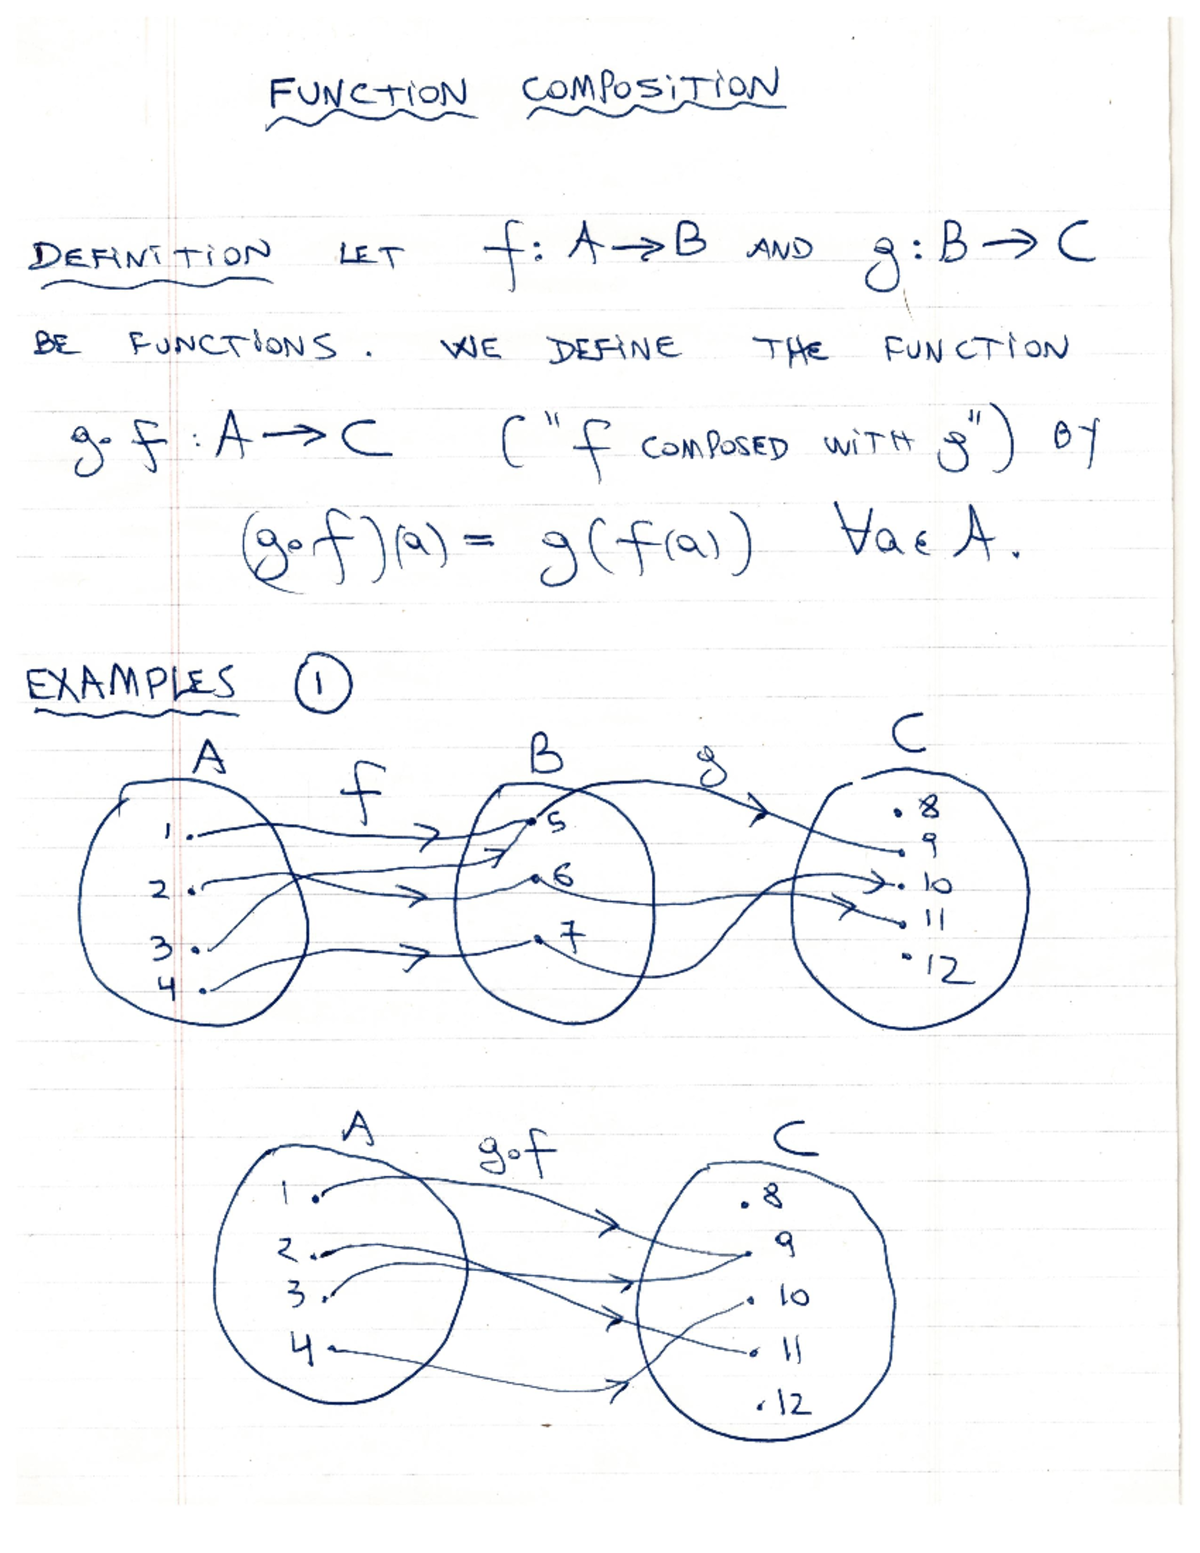 FUNCTION COMPOSITION
DEFINITION LET f: A→B AND g: B→C
BE FUNCTIONS. WE DEFINE THE FUNCTION
g∘f : A→C ("f COMPOSED WITH g") BY
(g∘f)(a) = g(f(a)) ∀a∈A.
EXAMPLES ①
A f B g C
1 5 8
2 6 9
3 7 10
4 11
12
A g∘f C
1 8
2 9
3 10
4 11
12